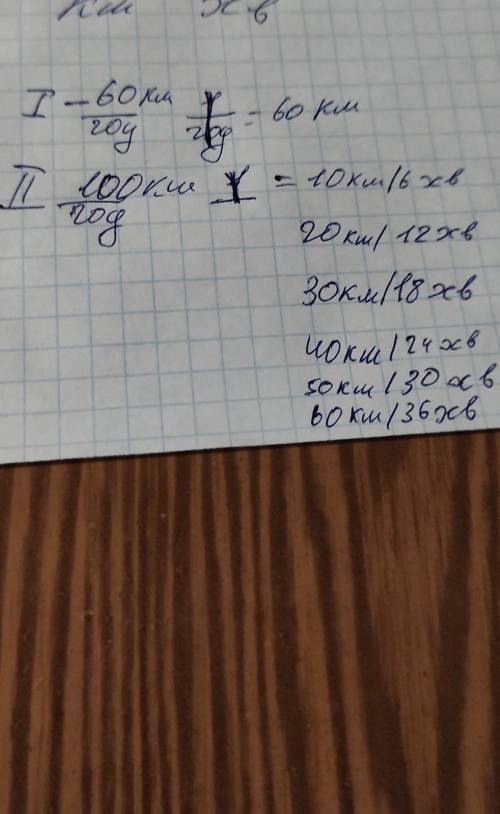 км хв
I - 60 км/год 1/год = 60 км
II 100 км/год 1 = 10 км/6 хв
20 км/12 хв
30 км/18 хв
40 км/24 хв
50 км/30 хв
60 км/36 хв